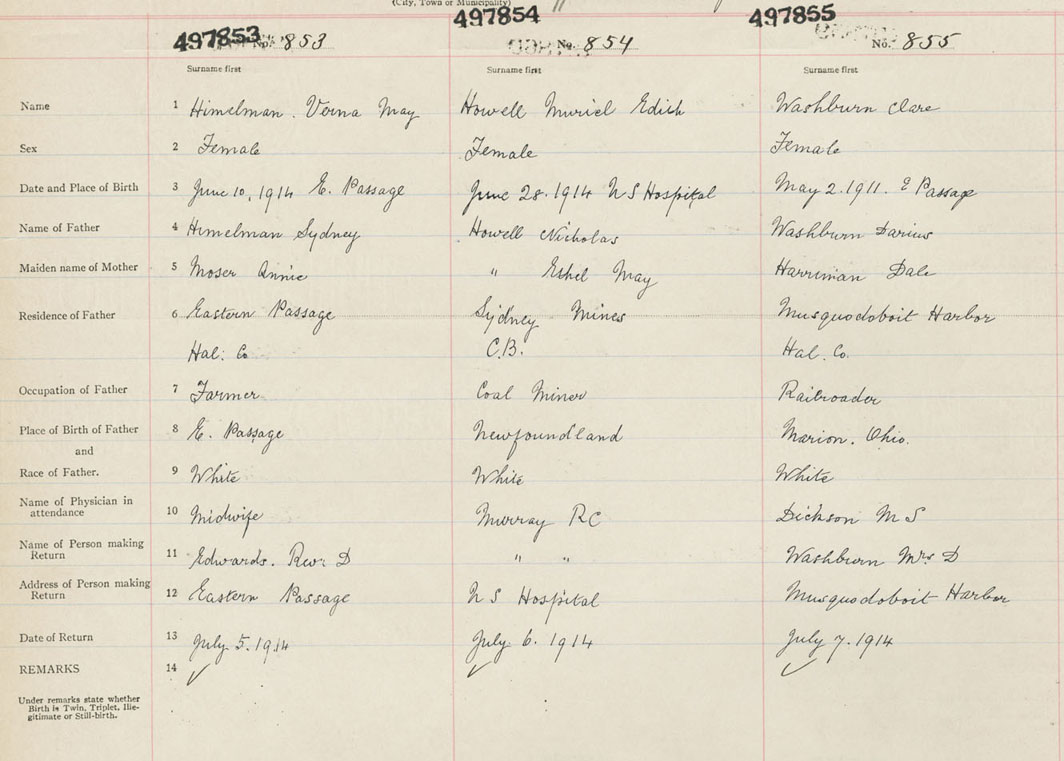 (City, Town or Municipality)
497853 No. 853 497854 No. 854 497855 No. 855
Surname first Surname first Surname first
Name 1 Himelman. Verna May Howell Muriel Edith Washburn Clare
Sex 2 Female Female Female
Date and Place of Birth 3 June 10, 1914 E. Passage June 28. 1914 N S Hospital May 2. 1911. E Passage
Name of Father 4 Himelman Sydney Howell Nicholas Washburn Darius
Maiden name of Mother 5 Moser Annie " Ethel May Harriman Dale
Residence of Father 6 Eastern Passage Sydney Mines Musquodoboit Harbor
Hal: Co. C.B. Hal. Co.
Occupation of Father 7 Farmer Coal Miner Railroader
Place of Birth of Father 8 E. Passage Newfoundland Marion. Ohio.
and
Race of Father. 9 White White White
Name of Physician in
attendance 10 Midwife Murray R C Dickson M S
Name of Person making
Return 11 Edwards. Rev: D " " Washburn Mrs D
Address of Person making
Return 12 Eastern Passage N S Hospital Musquodoboit Harbor
Date of Return 13 July 5. 1914 July 6. 1914 July 7. 1914
REMARKS 14 ✓ ✓ ✓
Under remarks state whether
Birth is Twin, Triplet, Ille-
gitimate or Still-birth.